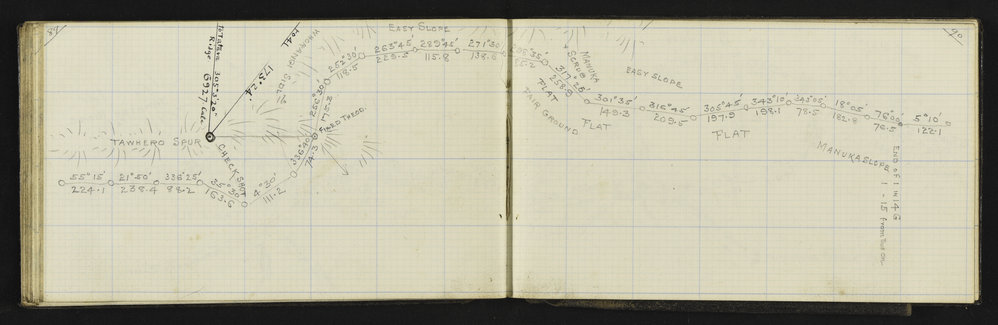 89
To Tatara
Ridge
305°3'20"
6927 Calc
173°24'
2041
WHORANGI SIDE 16
TAWHERO SPUR
CHECK SHOT
55°15'
224.1
21°50'
238.4
336°25'
88.2
35°30'
163.6
4°20'
111.2
336°40'
74.3
FIXED THEOD.
286°30'
175.3
262°30'
118.5
EASY SLOPE
263°45'
225.5
289°45'
115.8
271°30'
138.6
295°35'
MANUKA
& SCRUB
317°25'
258.9
FLAT
FAIR GROUND
90
EASY SLOPE
301°35'
149.3
FLAT
316°45'
209.5
305°45'
197.9
FLAT
343°10'
198.1
343°05'
73.5
18°05'
182.8
76°00'
76.5
5°10'
122.1
MANUKA SLOPE
END OF 1 IN 14 G
1 - 15 from